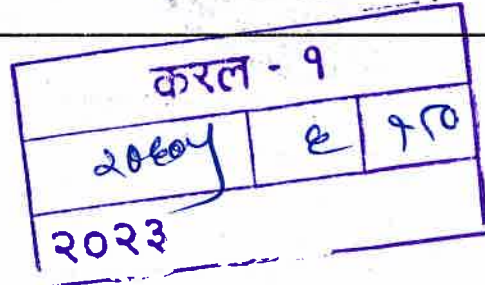 करल - १
२०६०५ ६ १८०
२०२३